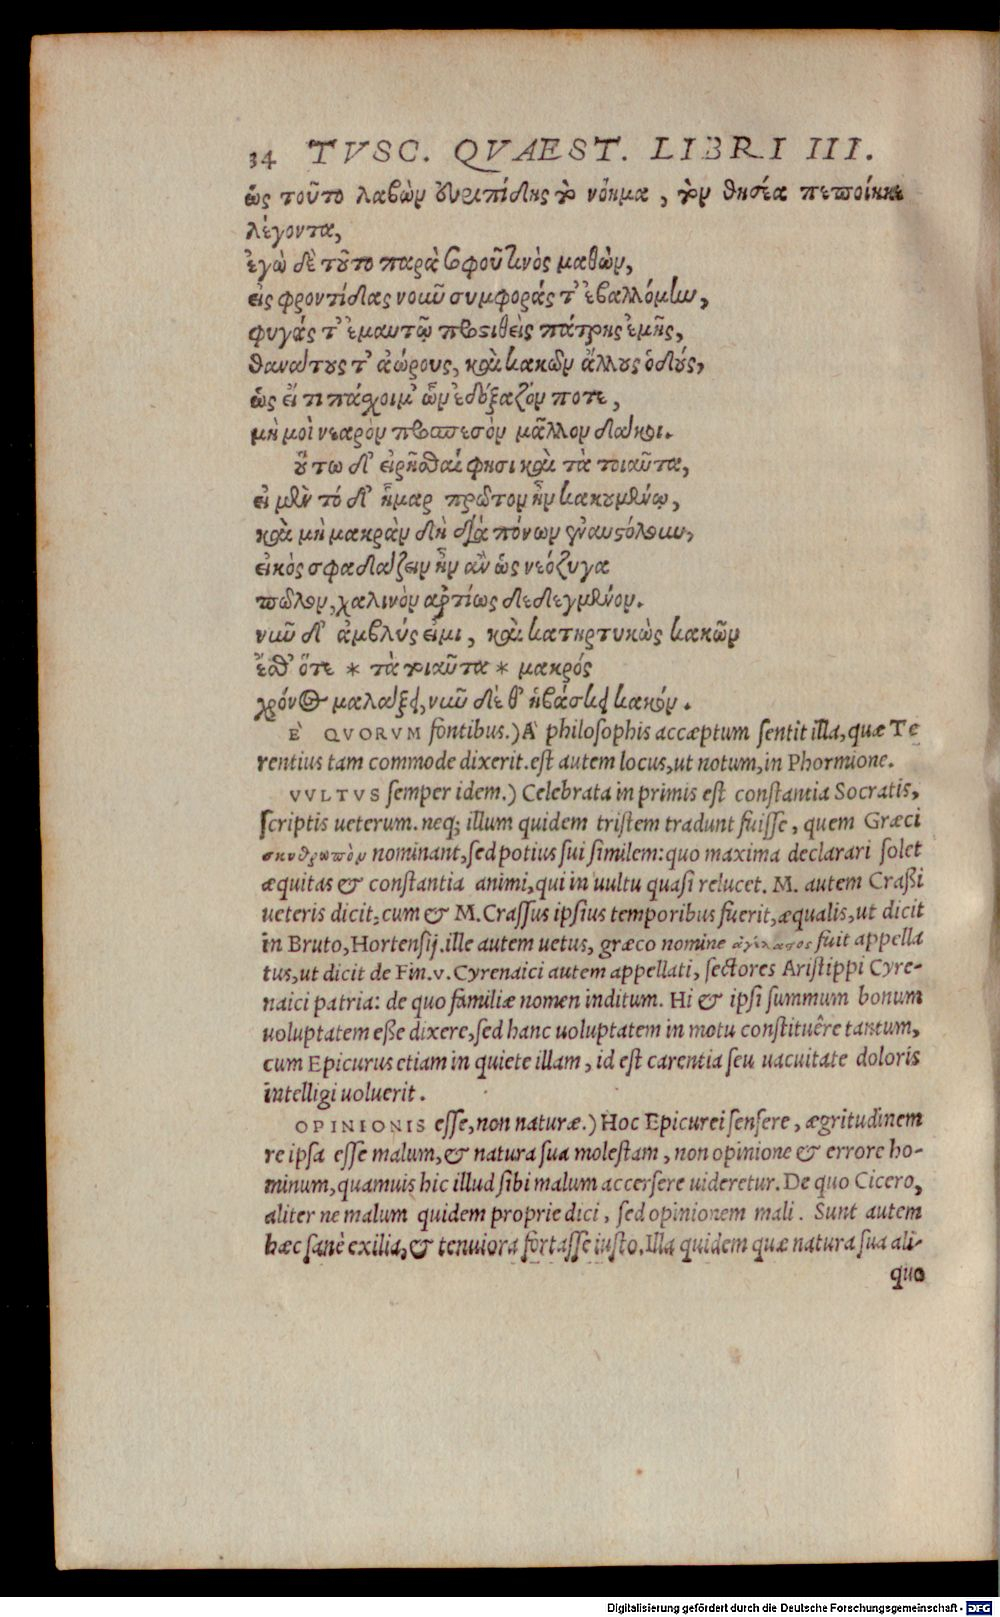 34 TVSC. QVAEST. LIBRI III.
ὡς τοῦτο λαβὼν Ευριπίδης τὸ νόημα, τὸν θησέα πεποίηκε
λέγοντα,
ἐγὼ δὲ τοῦτο παρὰ σοφοῦ τινὸς μαθὼν,
εἰς φροντίδας νοῦν συμφοράς τ' ἐβαλλόμην,
φυγάς τ' ἐμαυτῷ προςιθεὶς πάτρης ἐμῆς,
θανάτους τ' ἀώρους, καὶ κακῶν ἄλλους ὁδούς,
ὡς εἴ τι πάσχοιμ' ὧν ἐδόξαζόν ποτε,
μὴ μοὶ νεαρὸν προσπεσὸν μᾶλλον δάκοι.
οὕτω δ' εἰρῆσθαί φησι καὶ τὰ τοιαῦτα,
εἰ μὲν τό δ' ἦμαρ πρῶτον ἦν κακουμένῳ,
καὶ μὴ μακρὰν δὴ διὰ πόνων ἐναυςόλουν,
εἰκὸς σφαδάζειν ἦν ἂν ὡς νεόζυγα
πῶλον, χαλινὸν ἀρτίως δεδεγμένον.
νῦν δ' ἀμβλύς εἰμι, καὶ κατηρτυκὼς κακῶν
ἔσθ' ὅτε * τὰ τοιαῦτα * μακρός
χρόνος μαλάξει, νῦν δὲ θ' ἡβάσκει κακόν.
E' QVORVM fontibus.) A' philosophis accæptum sentit illa, quæ Te
rentius tam commode dixerit. est autem locus, ut notum, in Phormione.
VVLTVS semper idem.) Celebrata in primis est constantia Socratis,
scriptis ueterum. neq; illum quidem tristem tradunt fuisse, quem Græci
σκυθρωπὸν nominant, sed potius sui similem: quo maxima declarari solet
æquitas & constantia animi, qui in uultu quasi relucet. M. autem Craßi
ueteris dicit, cum & M. Crassus ipsius temporibus fuerit, æqualis, ut dicit
in Bruto, Hortensij. ille autem uetus, græco nomine ἀγέλαςος fuit appella
tus, ut dicit de Fin. v. Cyrenaici autem appellati, sectores Aristippi Cyre-
naici patria: de quo familiæ nomen inditum. Hi & ipsi summum bonum
uoluptatem eße dixere, sed hanc uoluptatem in motu constituêre tantum,
cum Epicurus etiam in quiete illam, id est carentia seu uacuitate doloris
intelligi uoluerit.
OPINIONIS esse, non naturæ.) Hoc Epicurei sensere, ægritudinem
re ipsa esse malum, & natura sua molestam, non opinione & errore ho-
minum, quamuis hic illud sibi malum accersere uideretur. De quo Cicero,
aliter ne malum quidem proprie dici, sed opinionem mali. Sunt autem
hæc sanè exilia, & tenuiora fortasse iusto. Illa quidem quæ natura sua ali-
quo
Digitalisierung gefördert durch die Deutsche Forschungsgemeinschaft - DFG